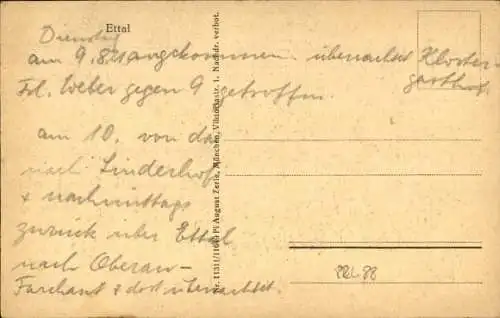 Ettal
Dienstag
am 9. 8. angekommen übernachtet Kloster-
gasthof.
Frl. Weber gegen 9 getroffen.
am 10. von da
nach Linderhof
+ nachmittags
zurück über Ettal
nach Oberau-
Farchant + dort übernachtet.
Nr. 11311/11 Pl August Zerle, München, Viktoriastr. 1. Nachdr. verbot.